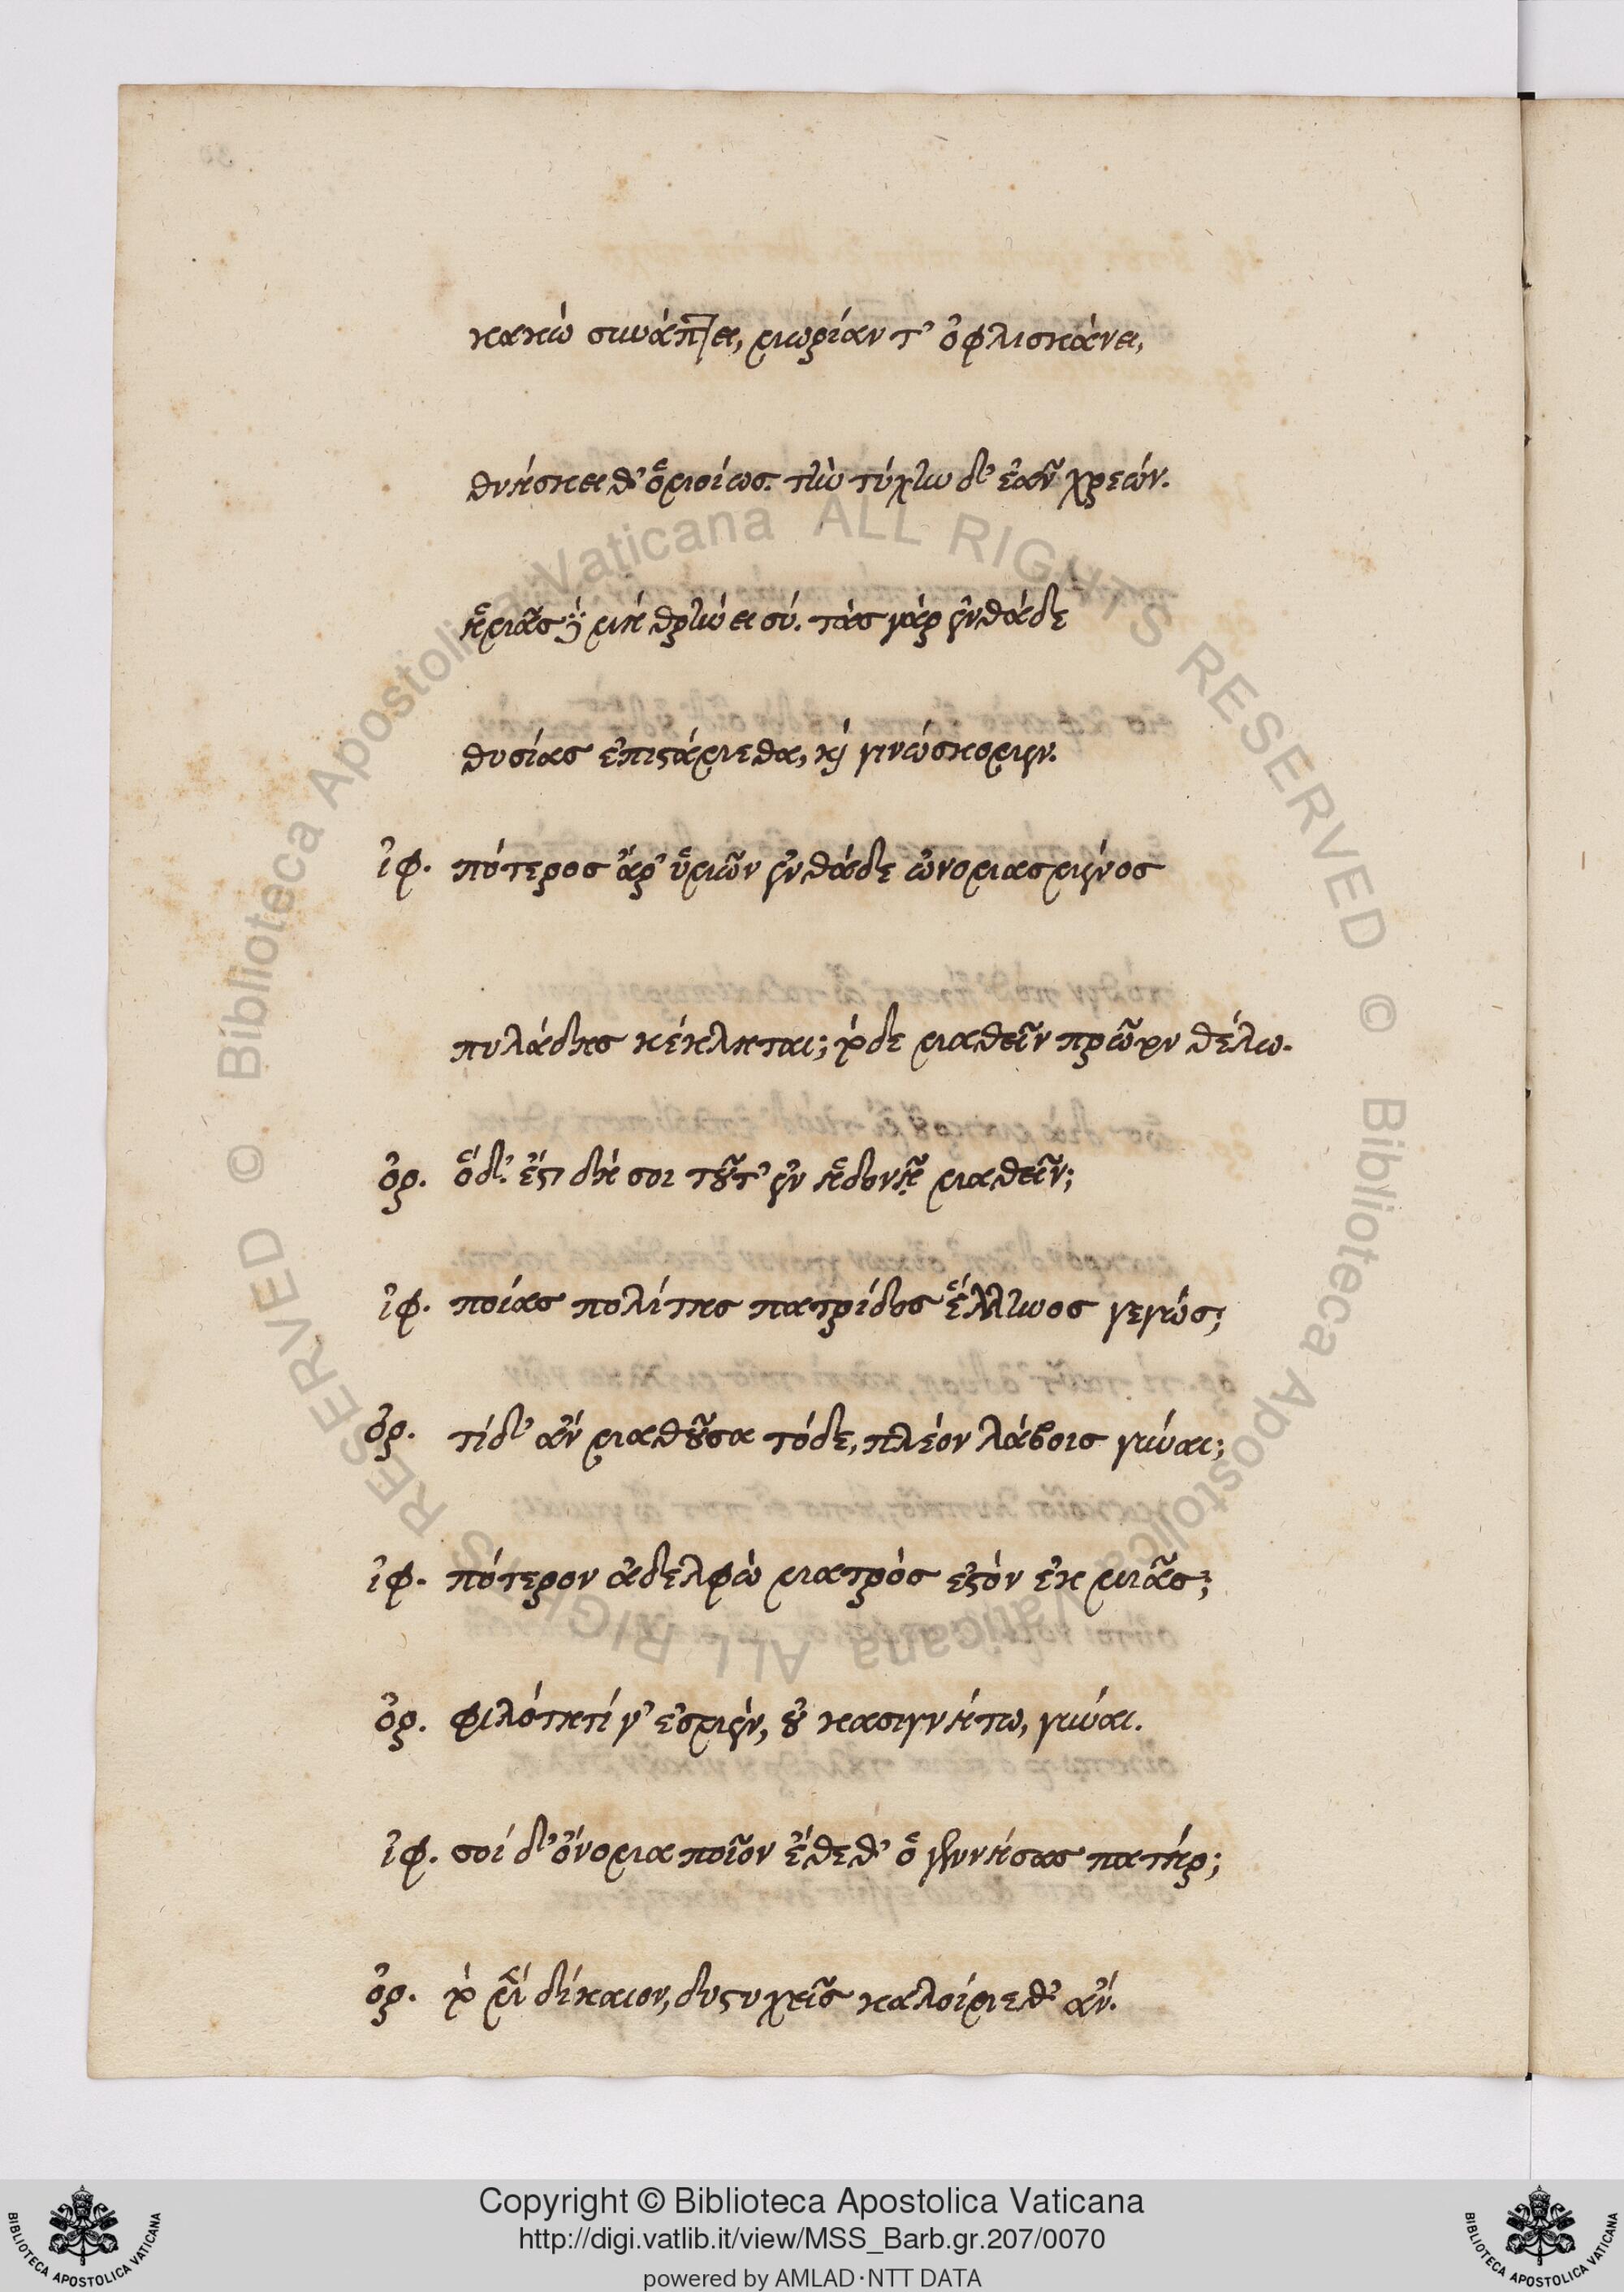 κακὼ συνάπτει, μωρίαν τ' ὀφλισκάνει,
θνήσκει θ' ὁμοίως. τὴν τύχην δ' ἐᾶν χρεών.
ἡμᾶς δὲ μὴ θρήνει σύ. τὰς γὰρ ἐνθάδε
θυσίας ἐπιστάμεθα, καὶ γινώσκομεν.
ἰφ. πότερος ἆρ' ὑμῶν ἐνθάδε ὠνομασμένος
πυλάδης κέκληται; τόδε μαθεῖν πρῶτον θέλω.
ὀρ. ὅδ'. ἔστι δή σοι τοῦτ' ἐν ἡδονῇ μαθεῖν;
ἰφ. ποίας πολίτης πατρίδος ἕλληνος γεγώς;
ὀρ. τί δ' ἂν μαθοῦσα τόδε, πλέον λάβοις γύναι;
ἰφ. πότερον ἀδελφὼ μητρὸς ἐστὸν ἐκ μιᾶς;
ὀρ. φιλότητί γ' ἐσμὲν, οὐ κασιγνήτω, γύναι.
ἰφ. σοί δ' ὄνομα ποῖον ἔθεθ' ὁ γεννήσας πατήρ;
ὀρ. τὸ μὲν δίκαιον, δυστυχεῖς καλοίμεθ' ἄν.
Copyright © Biblioteca Apostolica Vaticana
http://digi.vatlib.it/view/MSS_Barb.gr.207/0070
powered by AMLAD·NTT DATA
BIBLIOTECA APOSTOLICA VATICANA
BIBLIOTECA APOSTOLICA VATICANA
© Biblioteca Apostolica Vaticana ALL RIGHTS RESERVED © Biblioteca Apostolica Vaticana ALL RIGHTS RESERVED